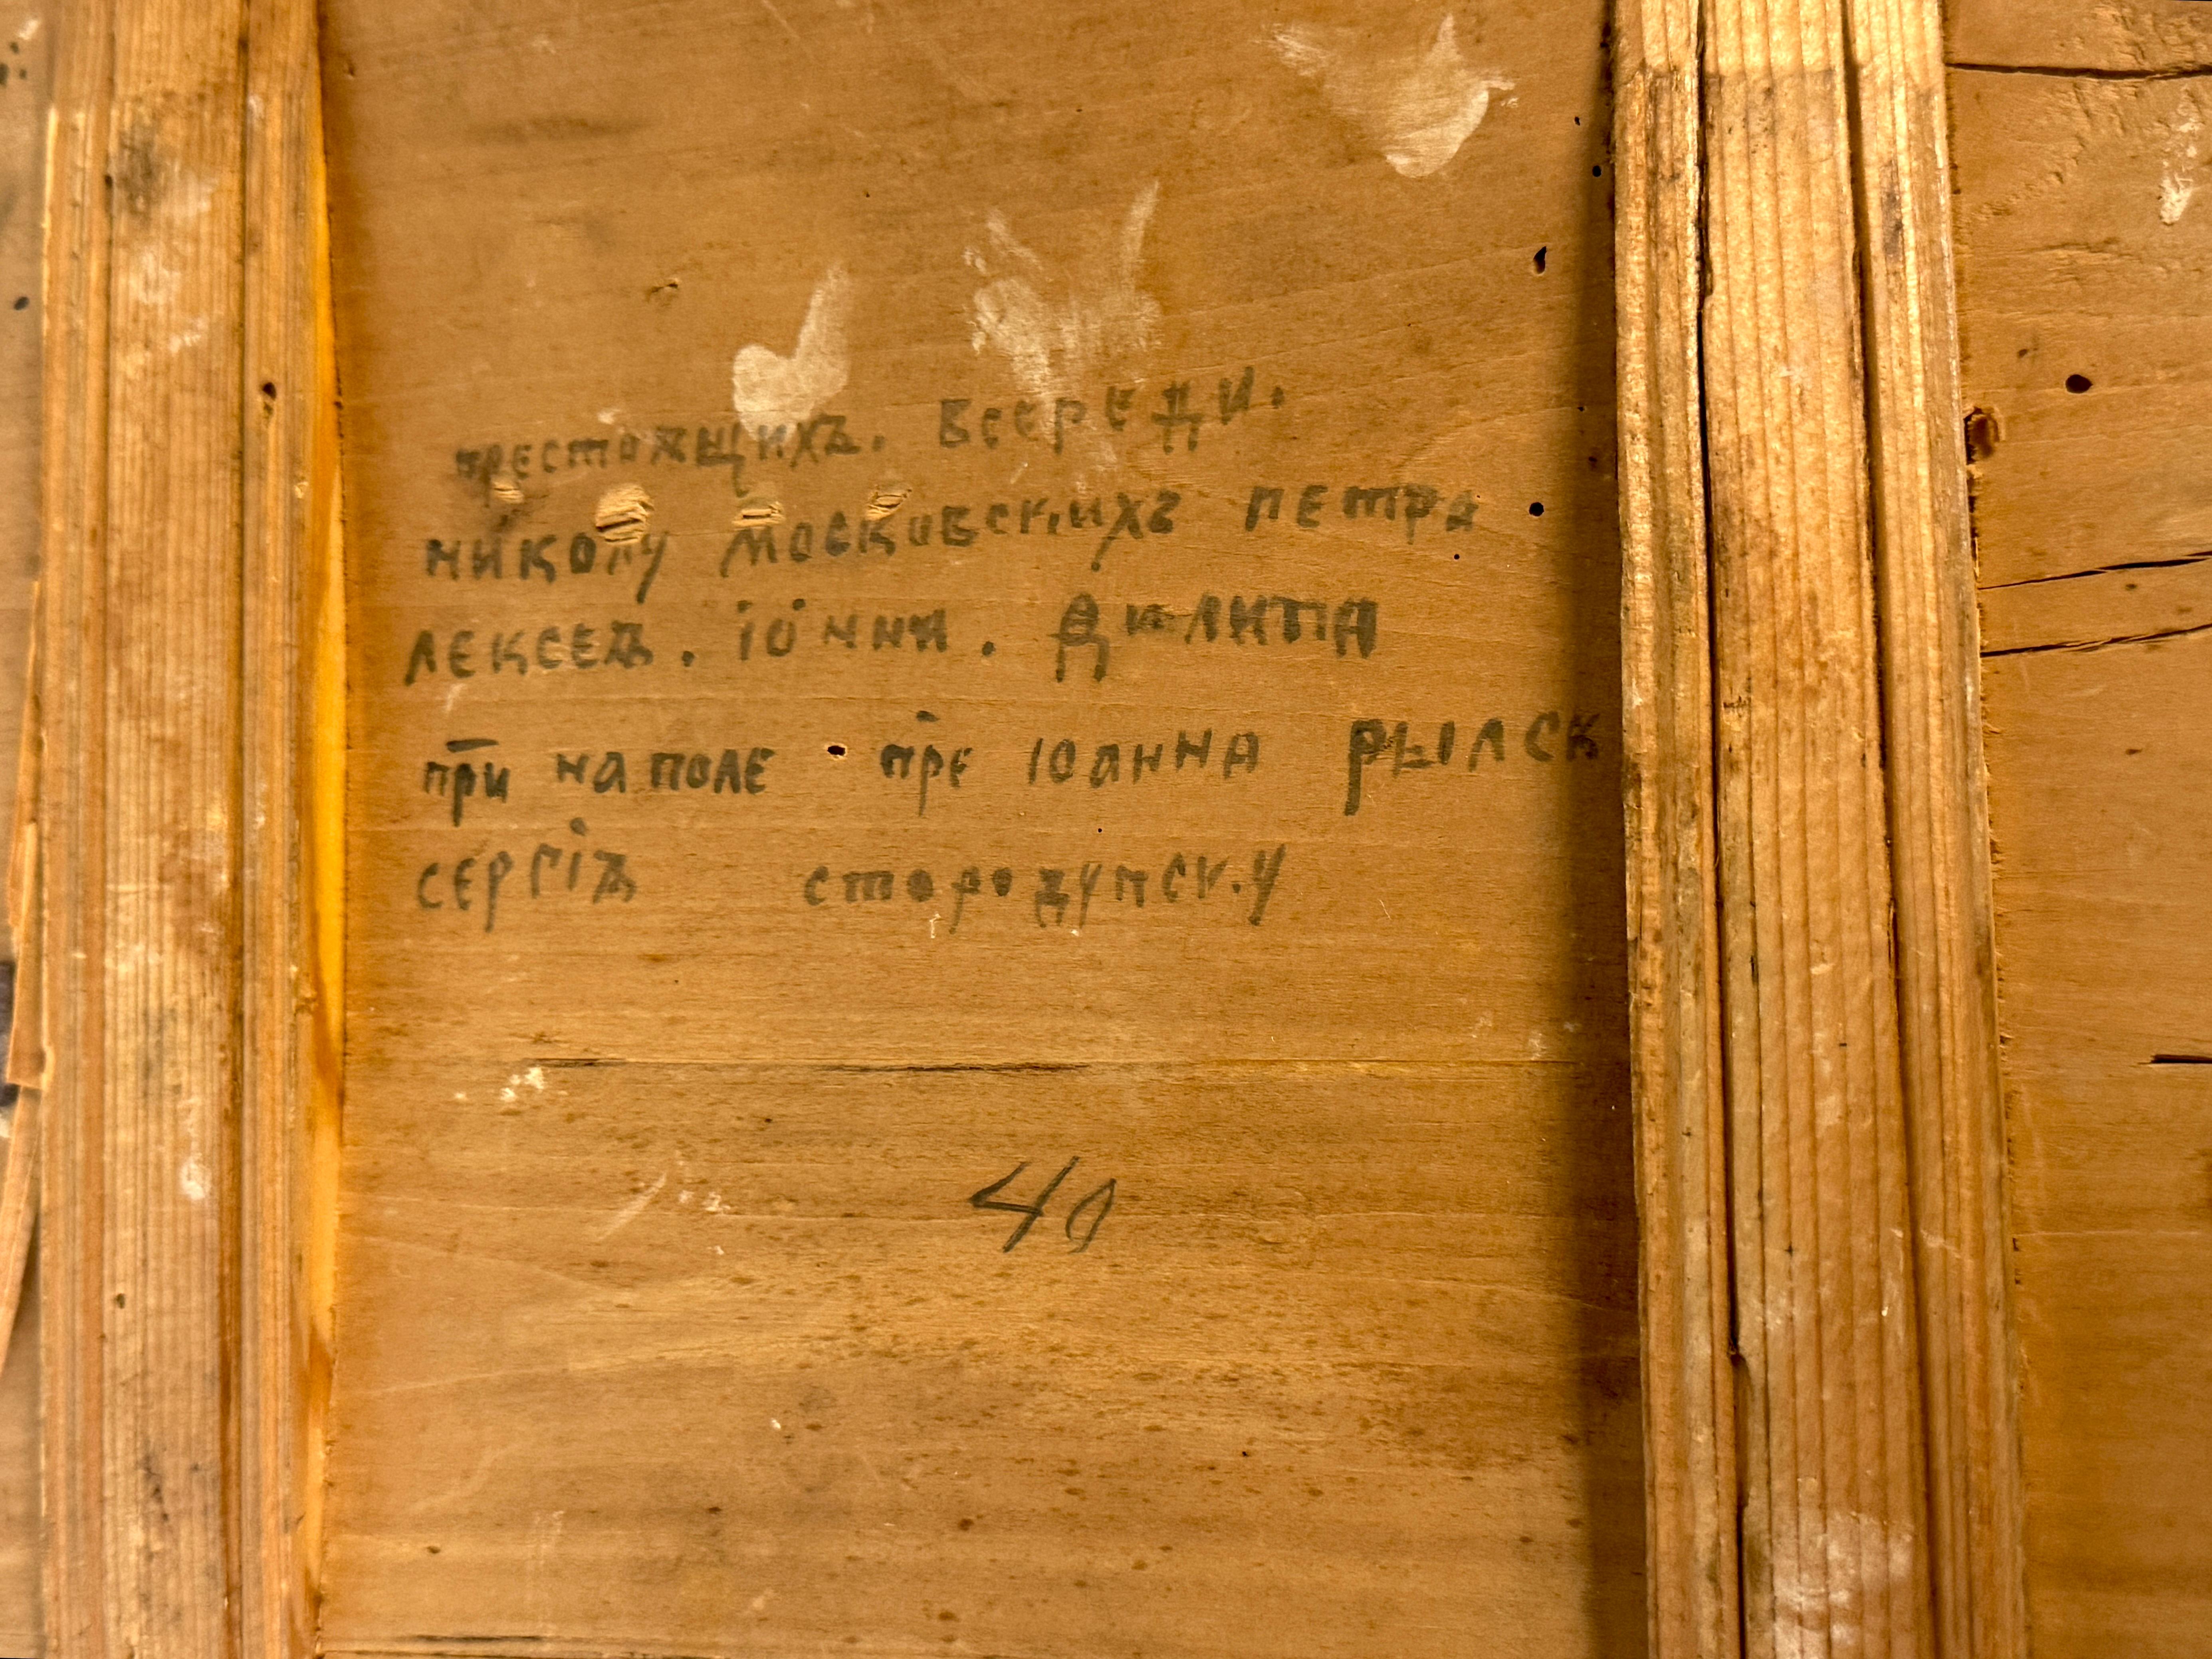 престоѧщихъ. всереди.
николу московск.ихъ петра
лексеѧ. іонни. Филипа
при на поле пре іоанна рылск
сергіѧ стородупск.у
40